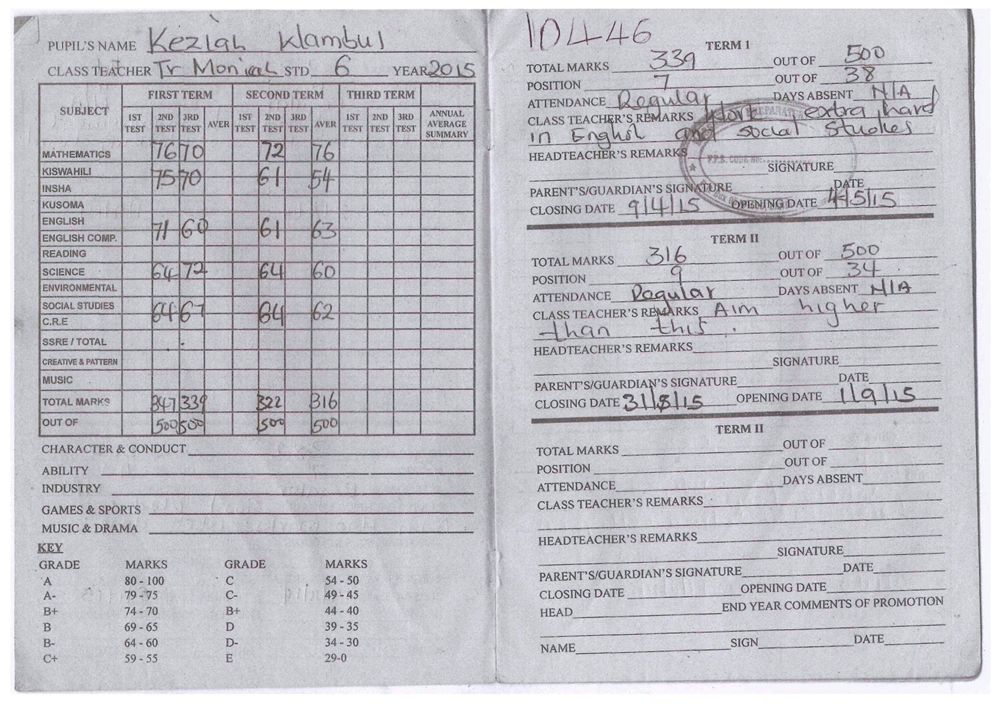 PUPIL'S NAME Keziah Wambui
CLASS TEACHER Tr Monicah STD 6 YEAR 2015
SUBJECT FIRST TERM SECOND TERM THIRD TERM
1ST TEST 2ND TEST 3RD TEST AVER 1ST TEST 2ND TEST 3RD TEST AVER 1ST TEST 2ND TEST 3RD TEST ANNUAL AVERAGE SUMMARY
MATHEMATICS 76 70 72 76
KISWAHILI 75 70 61 54
INSHA
KUSOMA
ENGLISH 71 60 61 63
ENGLISH COMP.
READING
SCIENCE 64 72 64 60
ENVIRONMENTAL
SOCIAL STUDIES 64 67 64 62
C.R.E
SSRE / TOTAL
CREATIVE & PATTERN
MUSIC
TOTAL MARKS 347 339 322 316
OUT OF 500 500 500 500
CHARACTER & CONDUCT
ABILITY
INDUSTRY
GAMES & SPORTS
MUSIC & DRAMA
KEY
GRADE MARKS GRADE MARKS
A 80 - 100 C 54 - 50
A- 79 - 75 C- 49 - 45
B+ 74 - 70 B+ 44 - 40
B 69 - 65 D 39 - 35
B- 64 - 60 D- 34 - 30
C+ 59 - 55 E 29-0
10446
TERM I
TOTAL MARKS 339 OUT OF 500
POSITION 7 OUT OF 38
ATTENDANCE Regular DAYS ABSENT N/A
CLASS TEACHER'S REMARKS Work extra hard
in English and social Studies
HEADTEACHER'S REMARKS
SIGNATURE
PARENT'S/GUARDIAN'S SIGNATURE DATE
CLOSING DATE 9/4/15 OPENING DATE 4/5/15
TERM II
TOTAL MARKS 316 OUT OF 500
POSITION 9 OUT OF 34
ATTENDANCE Regular DAYS ABSENT N/A
CLASS TEACHER'S REMARKS Aim higher
than this.
HEADTEACHER'S REMARKS
SIGNATURE
PARENT'S/GUARDIAN'S SIGNATURE DATE
CLOSING DATE 31/8/15 OPENING DATE 1/9/15
TERM II
TOTAL MARKS OUT OF
POSITION OUT OF
ATTENDANCE DAYS ABSENT
CLASS TEACHER'S REMARKS
HEADTEACHER'S REMARKS
SIGNATURE
PARENT'S/GUARDIAN'S SIGNATURE DATE
CLOSING DATE OPENING DATE
HEAD END YEAR COMMENTS OF PROMOTION
NAME SIGN DATE